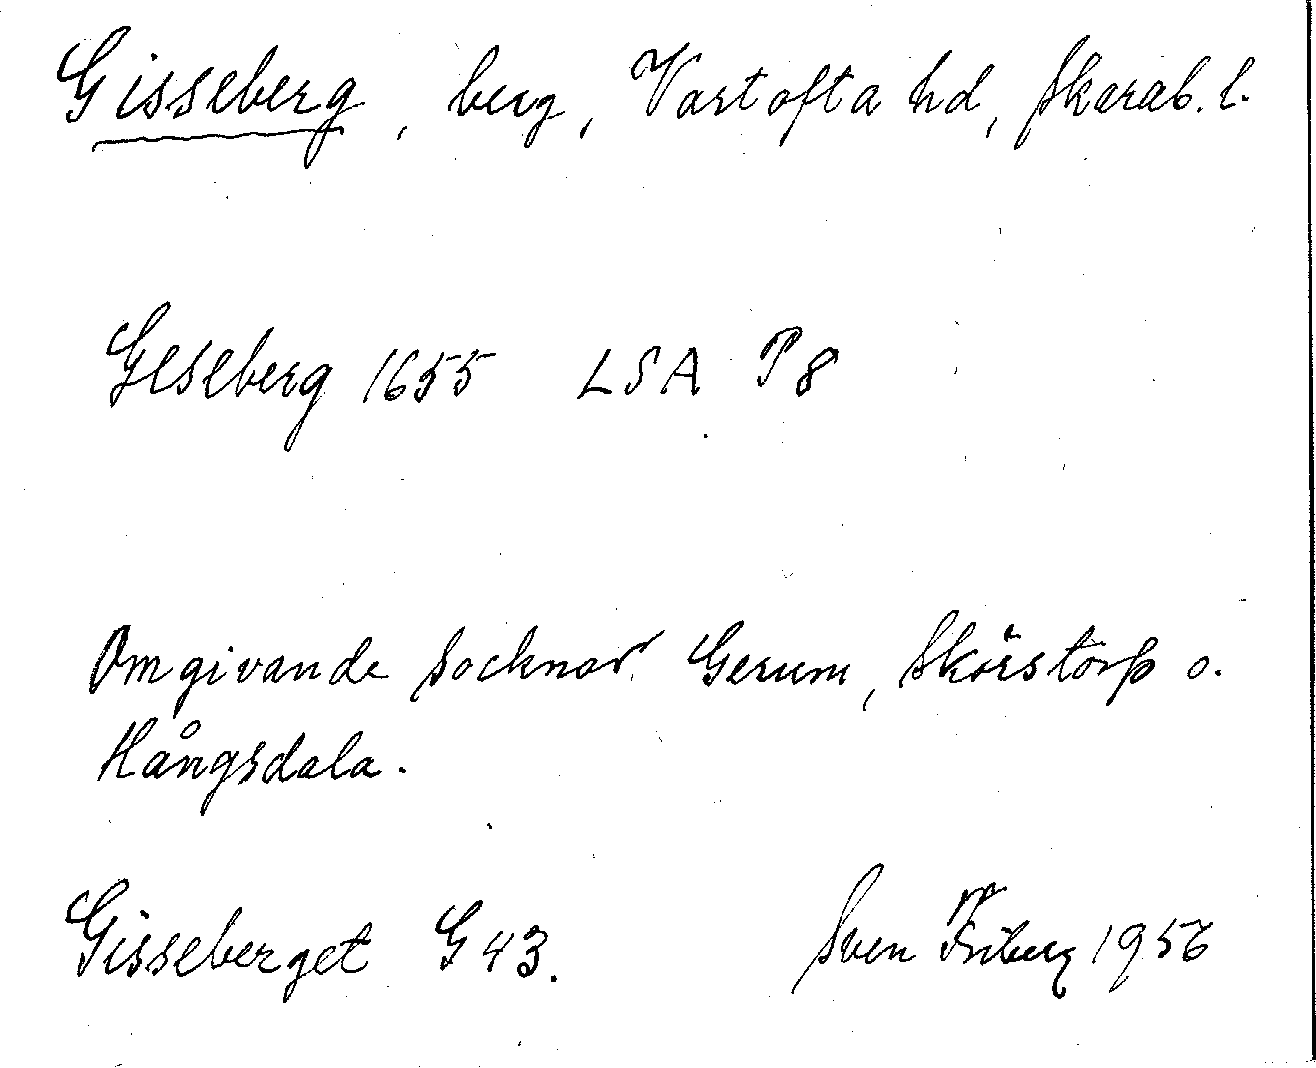 Gisseberg, berg, Vartofta hd, Skarab. l.
Geseberg 1655 LSA P8
Omgivande socknar Gerum, Skörstorp o.
Hångsdala.
Gisseberget G43. Sven Friberg 1956